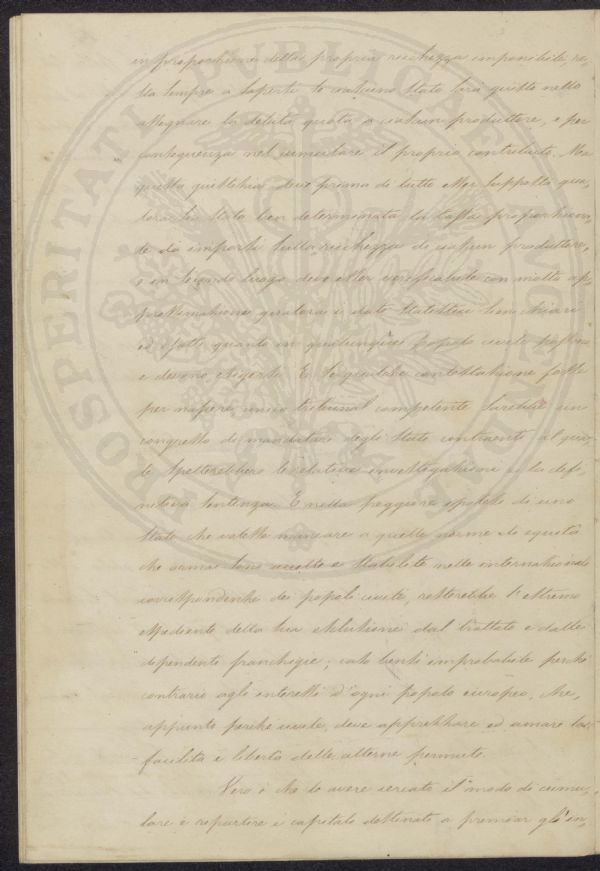 in proporzione della propria ricchezza imponibile, re,
sta sempre a sapersi se ciascuno Stato sarà giusto nello
assegnare la debita quota a ciascun produttore, e per
conseguenza nel cumulare il proprio contributo. Ma
questa giustizia deve prima di tutto esser supposta qua,
lora sia stata ben determinata la tassa proporziona,
le da imporsi sulla ricchezza di ciascun produttore,
e in secondo luogo deve esser verificabile con molta ap,
prossimazione qualora i dati statistici sian chiari
ed esatti quanto in qualunque popolo civile possono
e devono esigersi. E se qualche contestazione fosse
per nascere, unico tribunal competente sarebbe un
congresso di mandatari degli Stati contraenti al qua,
le spetterebbero le relative investigazioni e la defi,
nitiva sentenza. E nella peggiore ipotesi di uno
Stato che volesse mancare a quelle norme di equità
che ormai sono accolte e stabilite nelle internazionali
corrispondenze dei popoli civili, resterebbe l'estremo
espediente della sua esclusione dal trattato e dalle
dipendenti franchigie; caso bensì improbabile perché
contrario agli interessi d'ogni popolo europeo, che,
appunto perché civile, deve apprezzare ed amare la
facilità e libertà delle alterne permute.
Vero è che lo avere cercato il modo di cumu,
lare e repartire i capitali destinati a premiar gl'in,
PROSPERITATI PUBLICAE AUGENDAE